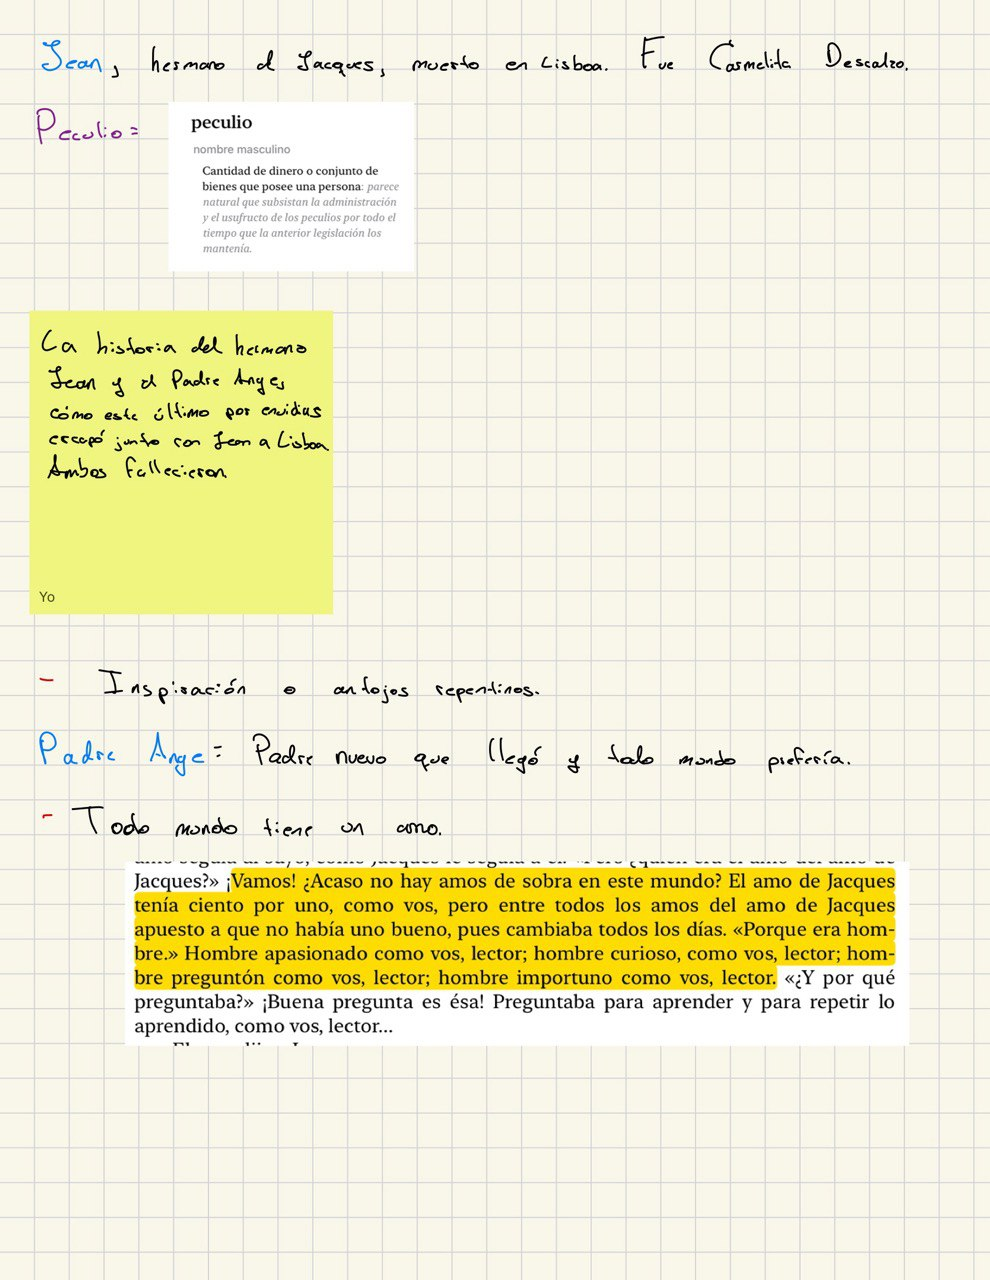 Jean, hermano d Jacques, muerto en Lisboa. Fue Carmelita Descalzo.
Peculio=
peculio
nombre masculino
Cantidad de dinero o conjunto de
bienes que posee una persona: parece
natural que subsistan la administración
y el usufructo de los peculios por todo el
tiempo que la anterior legislación los
mantenía.
La historia del hermano
Jean y el Padre Ange,
cómo este último por envidias
escapó junto con Jean a Lisboa
Ambos fallecieron
Yo
- Inspiración o antojos repentinos.
Padre Ange= Padre nuevo que llegó y todo mundo prefería.
- Todo mundo tiene un amo.
Jacques?» ¡Vamos! ¿Acaso no hay amos de sobra en este mundo? El amo de Jacques
tenía ciento por uno, como vos, pero entre todos los amos del amo de Jacques
apuesto a que no había uno bueno, pues cambiaba todos los días. «Porque era hom-
bre.» Hombre apasionado como vos, lector; hombre curioso, como vos, lector; hom-
bre preguntón como vos, lector; hombre importuno como vos, lector. «¿Y por qué
preguntaba?» ¡Buena pregunta es ésa! Preguntaba para aprender y para repetir lo
aprendido, como vos, lector...